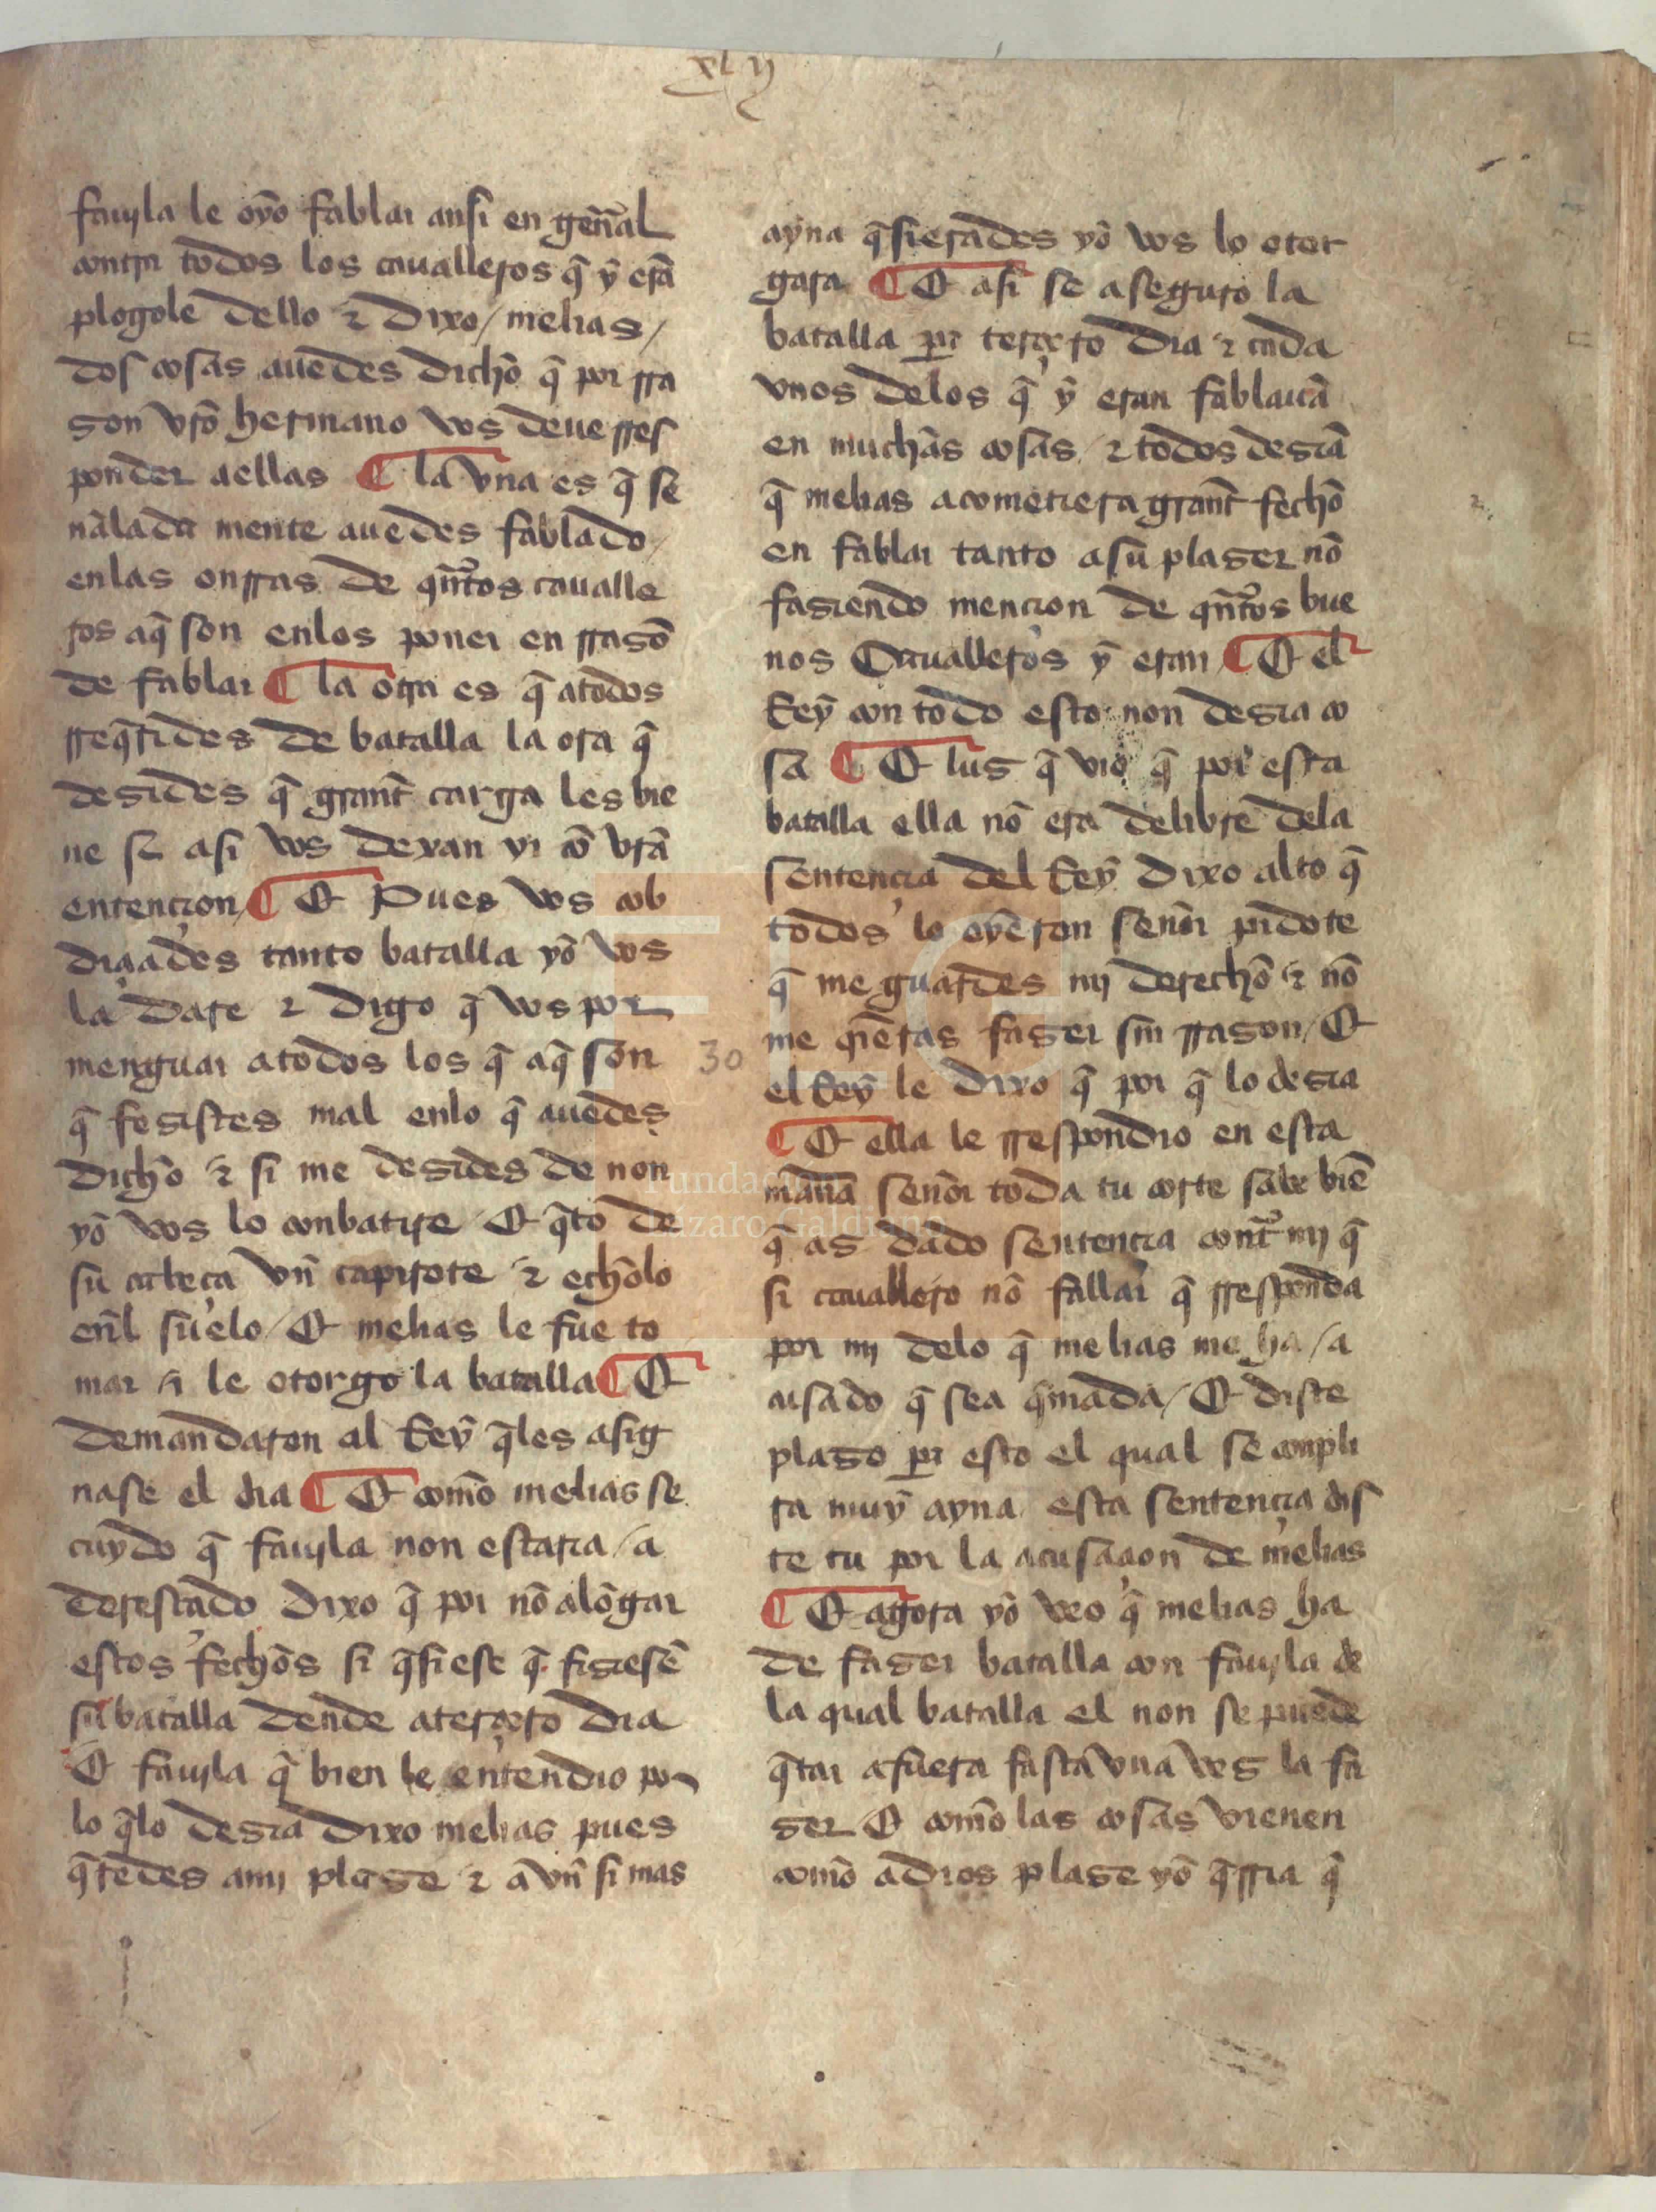 xlij
fauila le oyo fablar ansi en gen̄al
contra todos los caualleros q̄ ȳ erā
plogole dello ⁊ dixo / melias /
dos cosas auedes dicho q̄ por rra
son vr̄o hermano vos deue rres
ponder aellas ¶ la vna es q̄ se
nalada mente auedes fablado /
enlas onrras de qn̄tos caualle
ros aq̄ son enlos poner en rrasō
de fablar ¶ la ot̄ra es q̄ atodos
rreq̄rides de batalla la ora q̄
desides q̄ grant̄ carga les vie
ne si asi vos dexan yr cō vr̄a
entencion / ¶ E pues vos cob
diçiades tanto batalla yo vos
la dare ⁊ digo q̄ vos por
menguar atodos los q̄ aq̄ son
q̄ fesistes mal enlo q̄ auedes
dicho ⁊ si me desides de non
yo vos lo conbatire / E q̄to de
su cabeça vn̄ capirote ⁊ echolo
en̄l suelo / E melias le fue to
mar ⁊ le otorgo la batalla ¶ E
demandaron al Rey q̄les asig
nase el dia ¶ E com̄o melias se
cuydo q̄ fauila non estaria / a
deresçado dixo q̄ por nō alōgar
estos fechos si q̄siese q̄ fisiesē
su batalla dende aterçero dia
E fauila q̄ bien le entendio por
lo q̄lo desia dixo melias pues
q̄redes ami plase ⁊ avn̄ si mas
30
ayna q̄sierades yo vos lo otor
gara ¶ E asi se aseguro la
batalla par̄ terçero dia ⁊ cada
vnos delos q̄ ȳ eran fablauā
en muchas cosas / ⁊ todos desiā
q̄ melias acometiera grant̄ fecho
en fablar tanto asu plaser nō
fasiendo mencion de qn̄tos bue
nos Caualleros ȳ eran / ¶ E el
Rey con todo esto non desia co
sa ¶ E lus q̄ vio q̄ por esta
batalla ella nō era delibre dela
sentençia del Rey dixo alto q̄
todos lo oyeron señor pidote
q̄ me guardes mj derecho ⁊ nō
me qieras faser sin rrason / E
el Rey le dixo q̄ por q̄ lo desia
¶ E ella le rrespondio en esta
man̄a señor toda tu corte sabe biē
q̄ as dado sentençia cont̄ mj q̄
si cauallero nō fallar q̄ rresponda
por mj delo q̄ melias me ha / a
cusado q̄ sea q̄mada / E diste
plaso par̄ esto el qual se conpli
ra muy ayna esta sentençia dis
te tu por la acusaçion de melias
¶ E agora yo veo q̄ melias ha
de faser batalla con fauila de
la qual batalla el non se puede
q̄tar afuera fasta vna ves la fa
ser / E com̄o las cosas vienen
com̄o adios plase yo q̄rria q̄